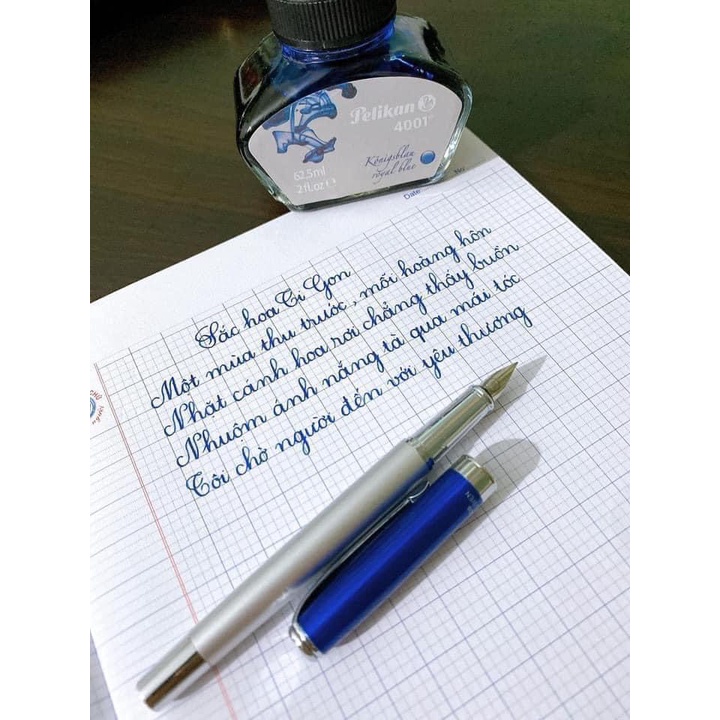 Pelikan
4001
Königsblau
royal blue
62.5ml
2 fl.oz
Date:
Sắc hoa Ti Gon
Một mùa thu trước, mỗi hoàng hôn
Nhặt cánh hoa rơi chẳng thấy buồn
Nhuộm ánh nắng tà qua mái tóc
Tôi chờ người đến với yêu thương